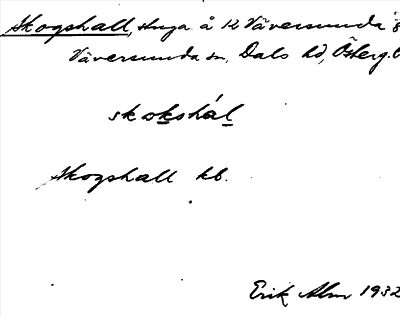 Skogshall, stuga å 12 Väversunda
Väversunda sn, Dals hd, Österg.
skokshál
Skogshall kb.
Erik Alm 1932